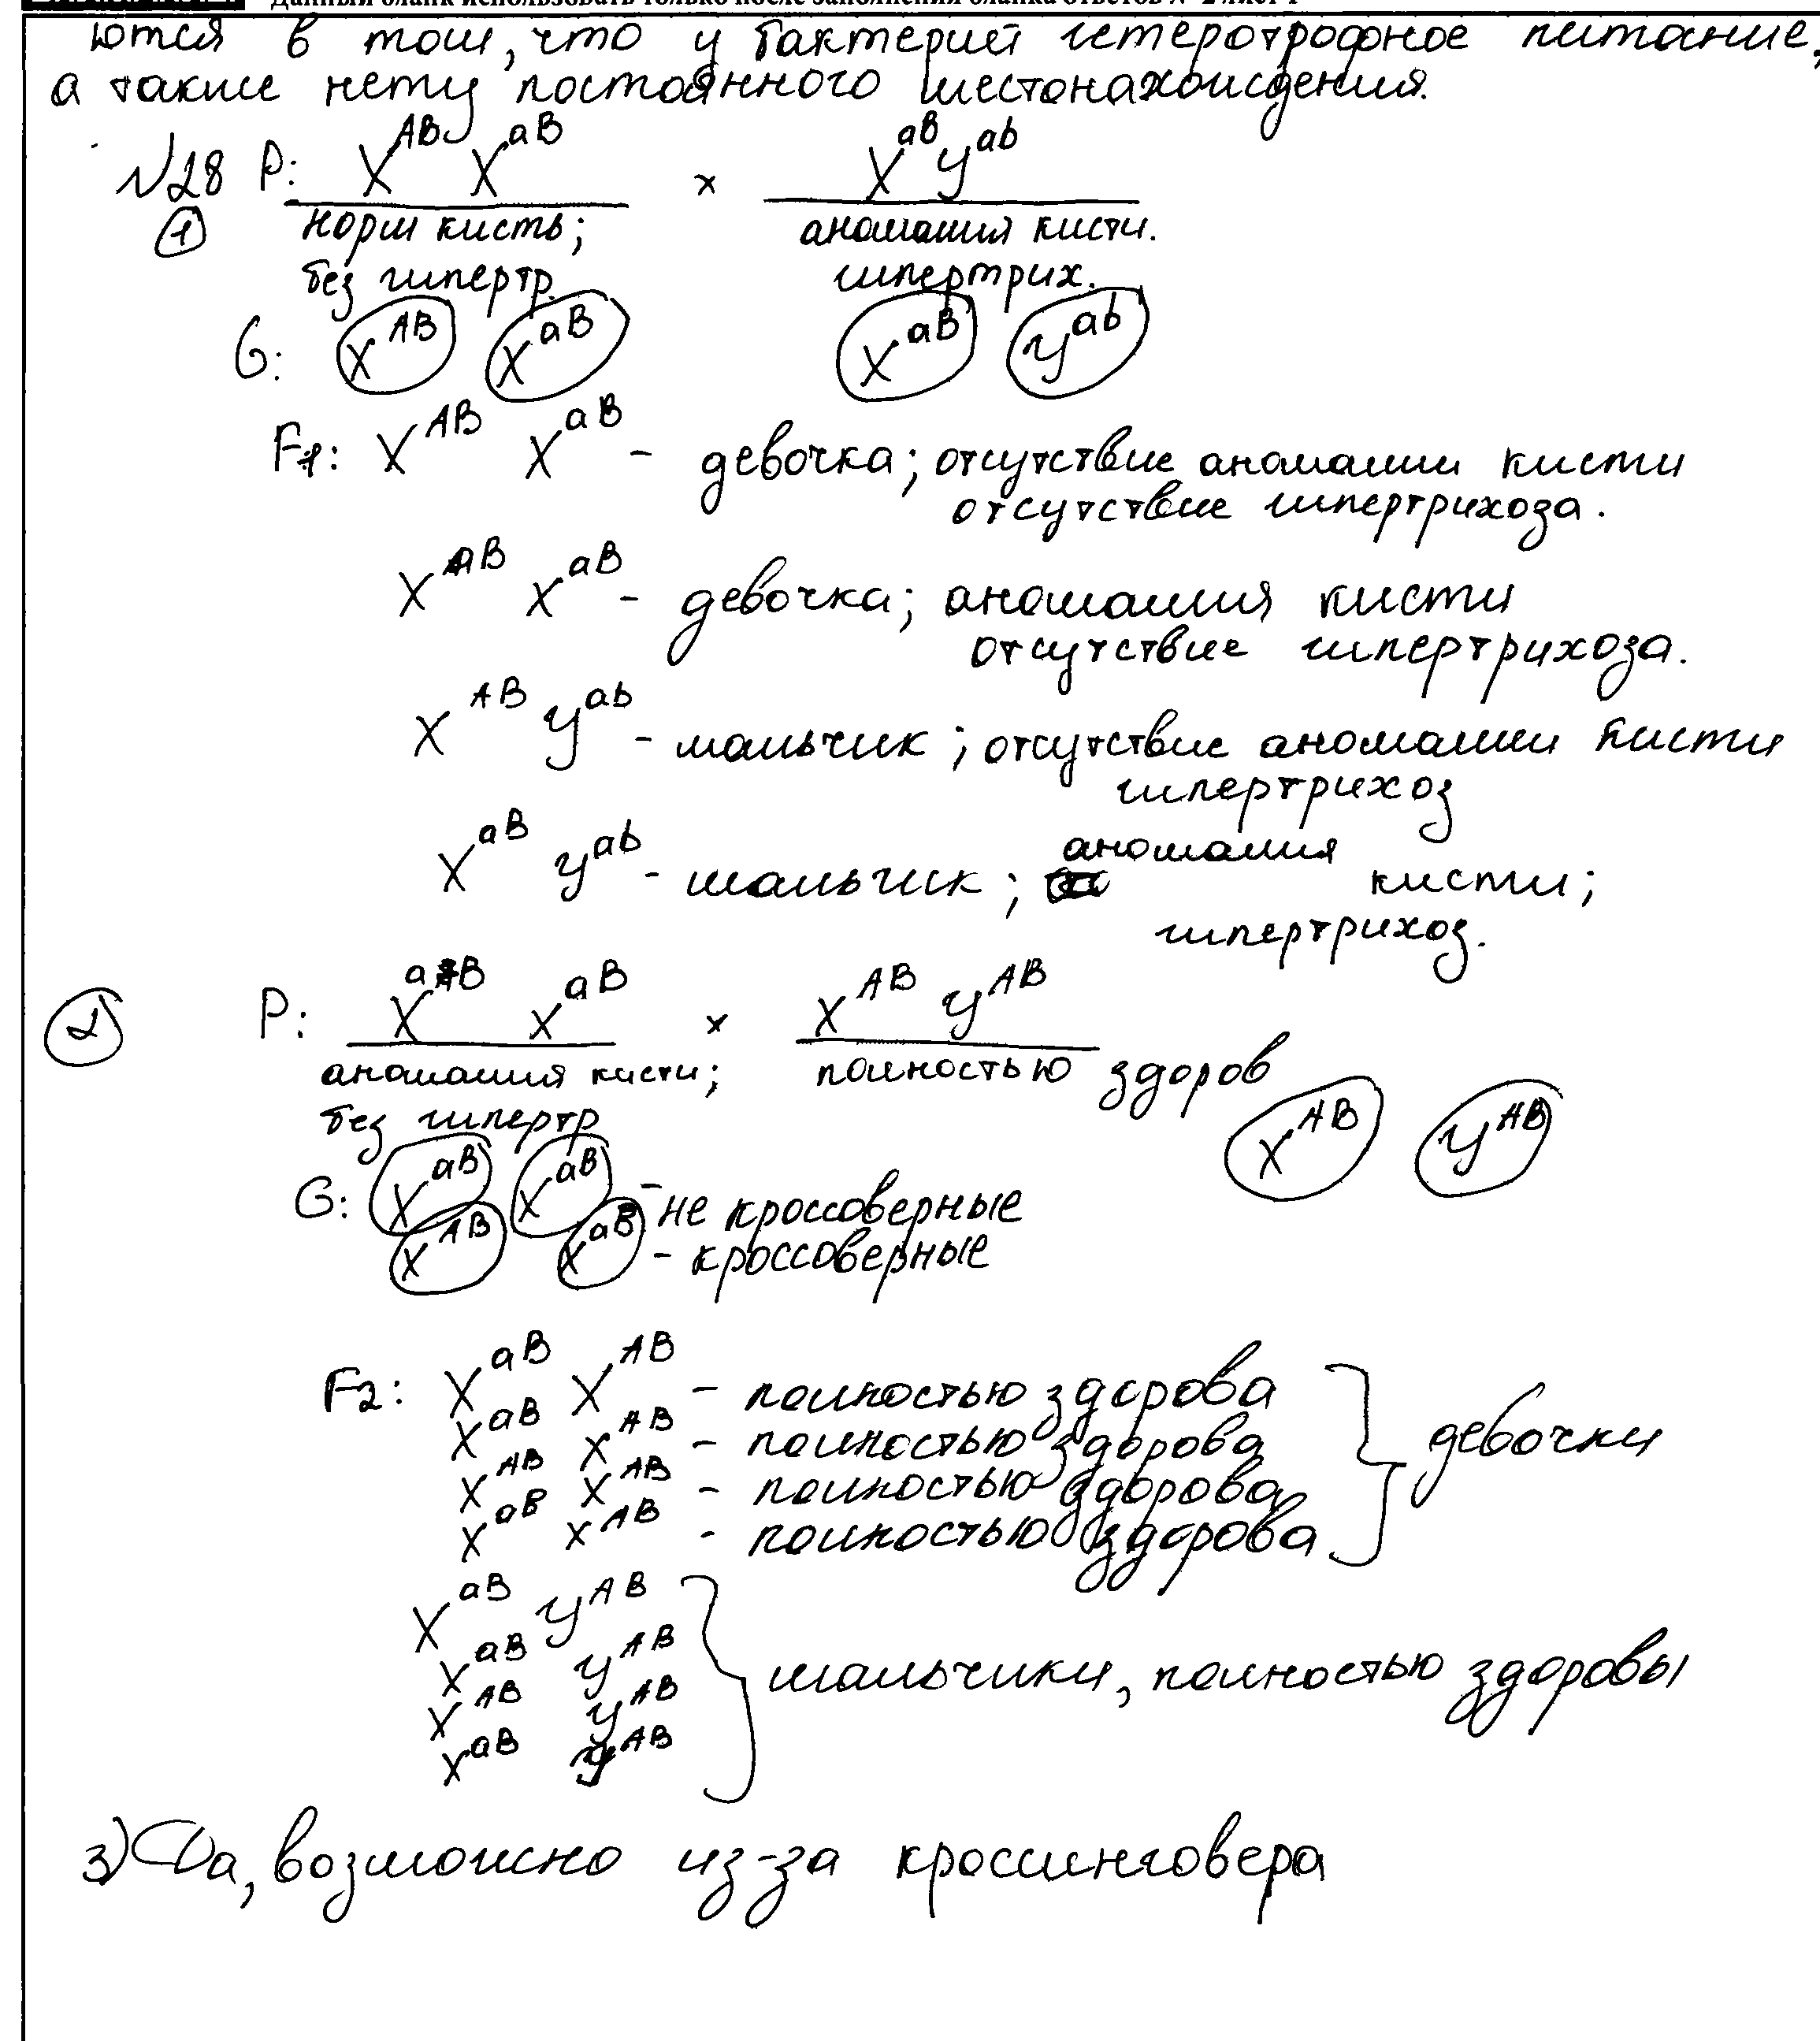 Данный бланк использовать только после заполнения бланка ответов № 2 лист 1
ются в том, что у бактерий гетеротрофное питание,
а также нету постоянного местонахождения.
№28 P: X^AB X^aB × X^aB У^ab
① норм кисть; аномалия кисти.
без гипертр. гипертрих.
G: X^AB X^aB X^aB У^ab
F1: X^AB X^aB - девочка; отсутствие аномалии кисти
отсутствие гипертрихоза.
X^aB X^aB - девочка; аномалия кисти
отсутствие гипертрихоза.
X^AB У^ab - мальчик; отсутствие аномалии кисти
гипертрихоз
X^aB У^ab - мальчик; аномалия кисти;
гипертрихоз.
② P: X^aB X^aB × X^AB У^AB
аномалия кисти; полностью здоров
без гипертр
X^AB У^AB
G: X^aB X^aB - не кроссоверные
X^AB X^aB - кроссоверные
F2: X^aB X^AB - полностью здорова
X^aB X^AB - полностью здорова
X^AB X^AB - полностью здорова
X^aB X^AB - полностью здорова
девочки
X^aB У^AB
X^aB У^AB
X^AB У^AB
X^aB У^AB
мальчики, полностью здоровы
3) Да, возможно из-за кроссинговера